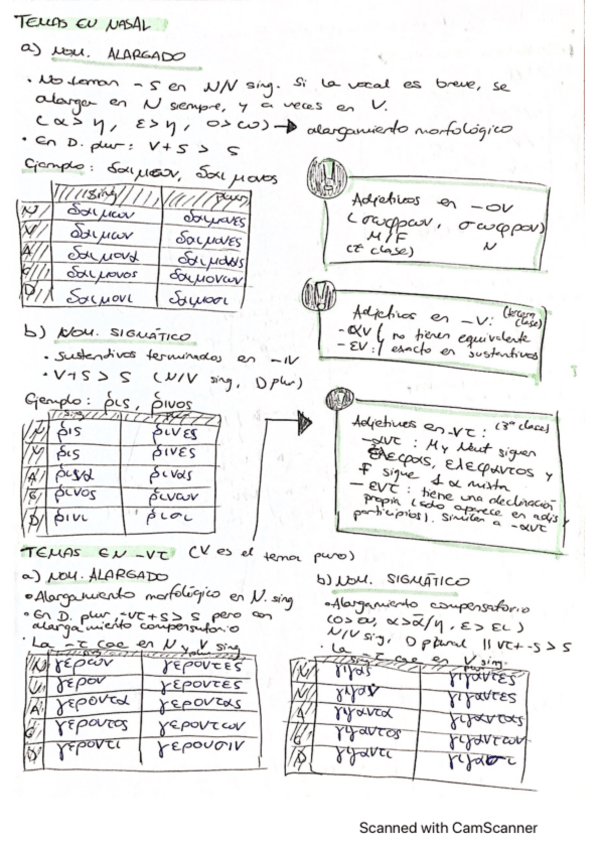 TEMAS EN NASAL
a) NOM. ALARGADO
• No toman -S en N/V sing. Si la vocal es breve, se
alarga en N siempre, y a veces en V.
(α>η, ε>η, ο>ω) → alargamiento morfológico
• En D. plur: ν+S > S
Ejemplo: δαιμων, δαιμονος
sing plur
N δαιμων δαιμονες
V δαιμων δαιμονες
A δαιμονα δαιμονας
G δαιμονος δαιμονων
D δαιμονι δαιμοσι
Adjetivos en -ον
(σωφρων, σωφρον)
M/F N
(2ª clase)
Adjetivos en -ν: (tercera clase)
-αν no tienen equivalente
-εν: exacto en sustantivos
b) NOM. SIGMÁTICO
• Sustantivos terminados en -ιν
• ν+S > S (N/V sing, D plur)
Ejemplo: ῥις, ῥινος
sing plur
N ῥις ῥινες
V ῥις ῥινες
A ῥινα ῥινας
G ῥινος ῥινων
D ῥινι ῥισι
Adjetivos en -ντ: (3ª clase)
-αντ: M y Neut siguen
ελεφας, ελεφαντος y
F sigue 1 α mixta
- εντ: tiene una declinación
propia (solo aparece en adjs y
participios). Similar a -αντ
TEMAS EN -ντ (ν es el tema puro)
a) NOM. ALARGADO
• Alargamiento morfológico en N. sing
• En D. plur, -ντ+S>S pero con
alargamiento compensatorio
• La -τ cae en N y V sing
N γερων γεροντες
V γερον γεροντες
A γεροντα γεροντας
G γεροντος γεροντων
D γεροντι γερουσιν
b) NOM. SIGMÁTICO
• Alargamiento compensatorio
(ο>ου, α>ᾱ/η, ε>ει)
N/V sing, D plural || ντ+-s>S
• La -τ cae en V sing.
N γιγας γιγαντες
V γιγαν γιγαντες
A γιγαντα γιγαντας
G γιγαντος γιγαντων
D γιγαντι γιγασι
Scanned with CamScanner